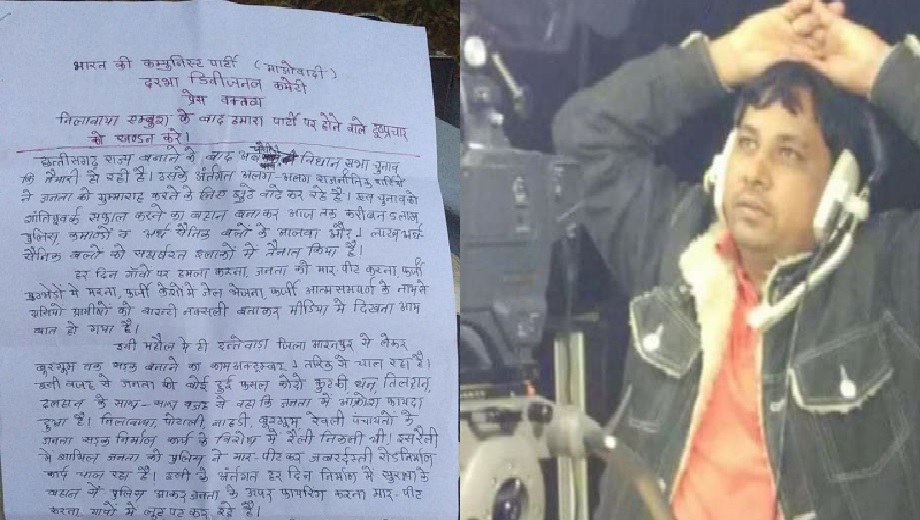 भारत की कम्युनिस्ट पार्टी (माओवादी)
दरभा डिवीजनल कमेटी
प्रेस वक्तव्य
निलावाया एम्बुश के बाद हमारा पार्टी पर होने वाले दुष्प्रचार
को खण्डन करे।
छत्तीसगढ़ राज्य बनाने के बाद अब विधान सभा चुनाव
कि तैयारी हो रही है। उसके अंतर्गत अलग-अलग राजनीतिक पार्टियों
ने जनता को गुमराह करने के लिए झूटे वादे कर रहे है। इस चुनाव को
शांतिपूर्वक सफल करने का बहाना बनाकर आज तक करीबन
पुलिस, कमांडों व अर्ध सैनिक बलों के अलावा और 1 लाख अर्ध
सैनिक बलों को संघर्षरत इलाकों में तैनात किया है।
हर दिन गाँवों पर हमला करना, जनता को मार पीट करना, फर्जी
मुठभेड़ों में मारना, फर्जी केशों में जेल भेजना, फर्जी आत्म समर्पण के नाम से
ग्रामीणों को वारन्टी नक्सली बनाकर मीडिया में दिखाना आम
बात हो गया है।
इसी महौल में ही दन्तेवाड़ा जिला से लेकर
बुरगुम तक सड़क बनाने का काम 1 तारिक से चल रहा है।
इसी वजह से जनता की बोई हुई फसल कोदो कुटकी धान, तिलहन,
दलहन के साथ-साथ जनता में आक्रोश
हुआ है। निलावाया, पोटाली, बुरगुम, रेवली पंचायतों के
जनता सड़क निर्माण कार्य के विरोध में रैली निकली थी। इस रैली
में शामिल जनता को पुलिस ने मार-पीट कर जबरदस्ती रोड निर्माण
कार्य चल रहा है। इसी के अंतर्गत हर दिन निर्माण में सुरक्षा के
बहाने में पुलिस आकर जनता के ऊपर फायरिंग करना मार-पीट
करना, गावों में लूट कर रहे है।